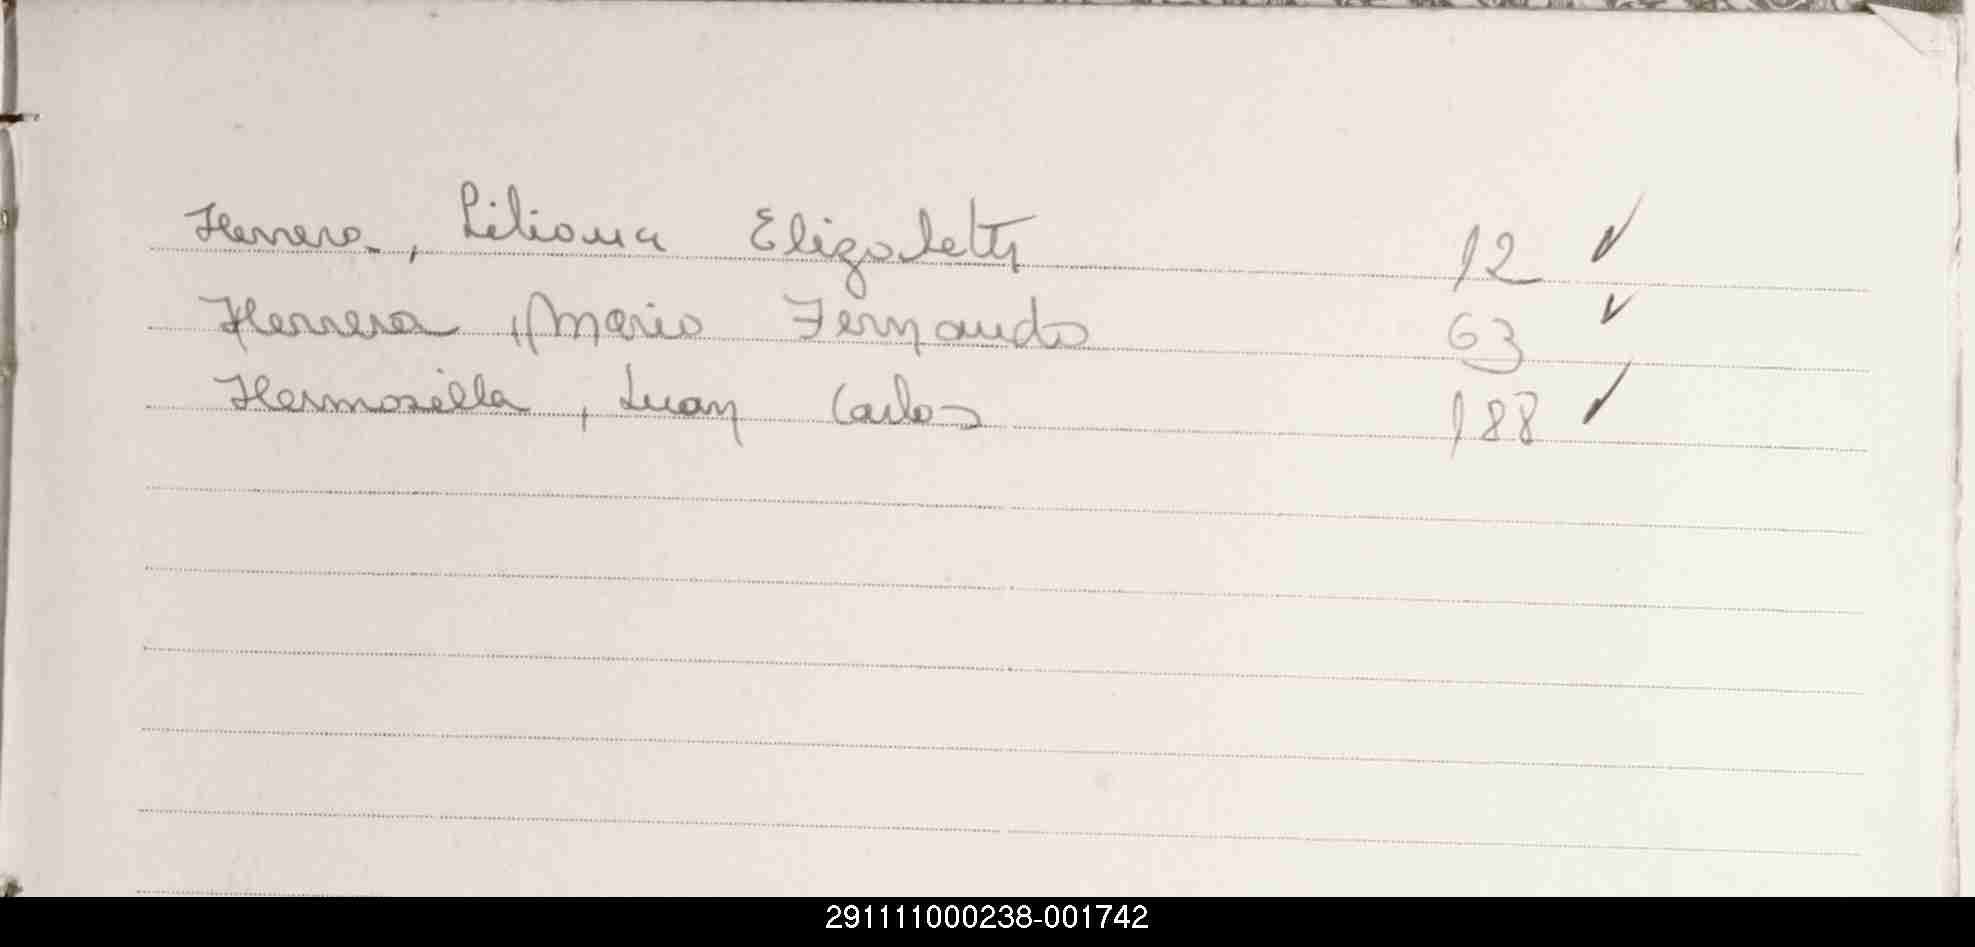 Herrera, Liliana Elizabeth 12 ✓
Herrera, Mario Fernando 63 ✓
Hermosilla, Juan Carlos 188 ✓
291111000238-001742